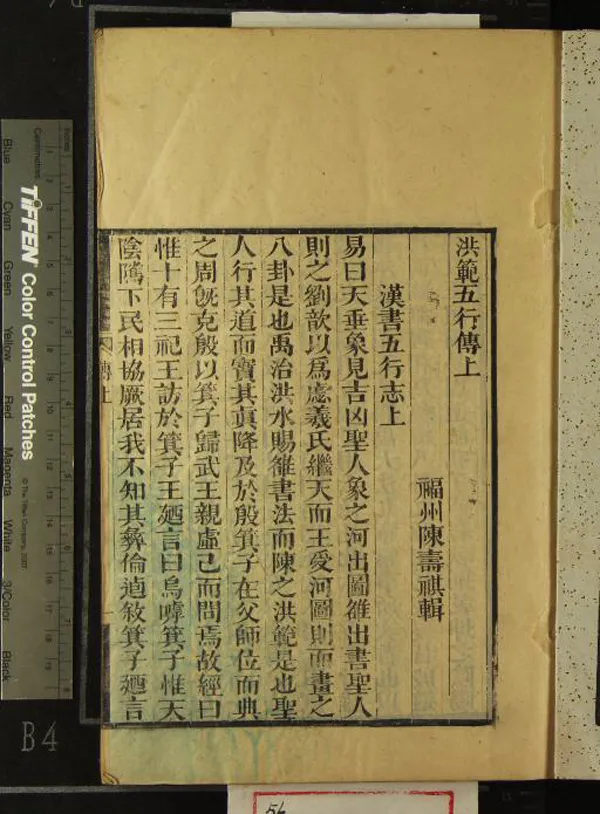 洪範五行傳上
福州陳壽祺輯
漢書五行志上
易曰天垂象見吉凶聖人象之河出圖雒出書聖人
則之劉歆以爲虙羲氏繼天而王受河圖則而畫之
八卦是也禹治洪水賜雒書法而陳之洪範是也聖
人行其道而寶其眞降及於殷箕子在父師位而典
之周旣克殷以箕子歸武王親虛己而問焉故經曰
惟十有三祀王訪於箕子王廼言曰烏嘑箕子惟天
陰騭下民相協厥居我不知其彝倫逌敘箕子廼言
傳上
一
TIFFEN Color Control Patches
© The Tiffen Company, 2007
Centimetres
Blue Cyan Green Yellow Red Magenta White 3/Color Black
B4